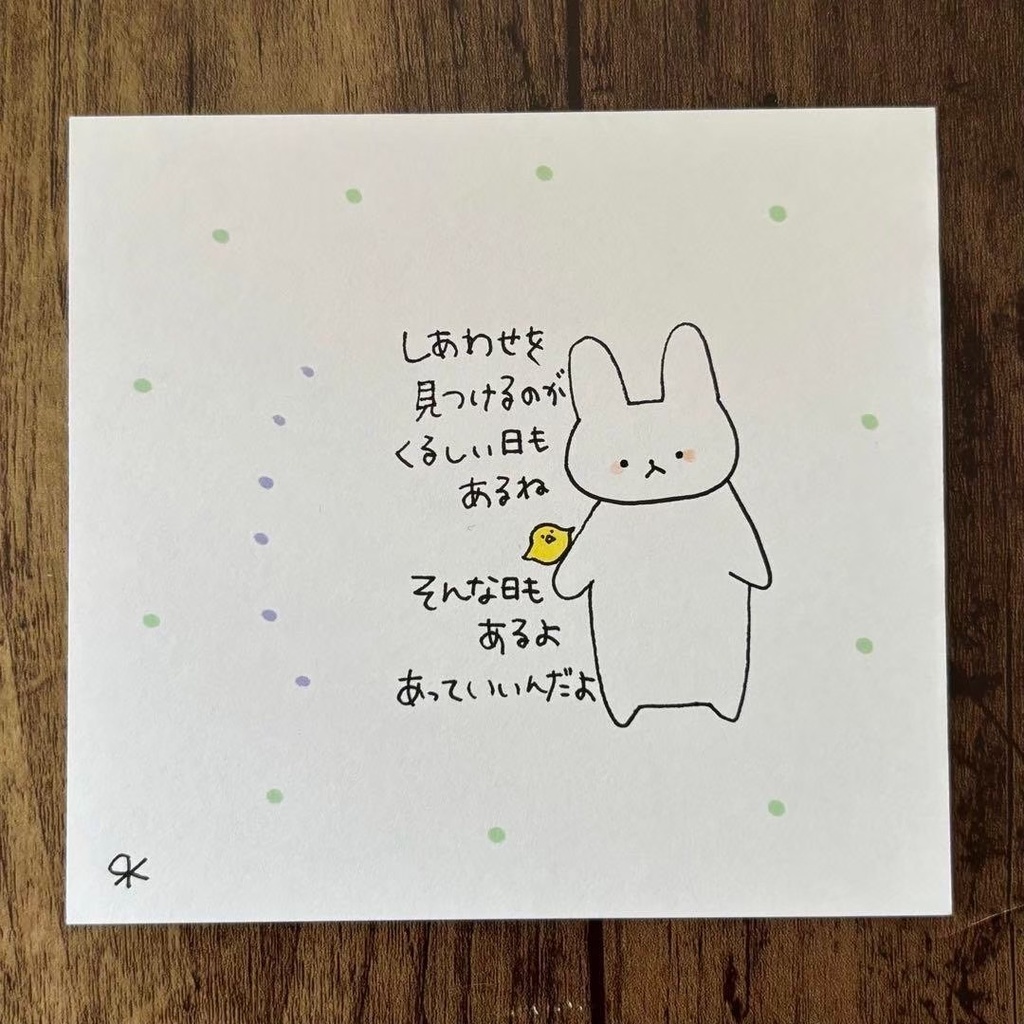 しあわせを
見つけるのが
くるしい日も
あるね
そんな日も
あるよ
あっていいんだよ